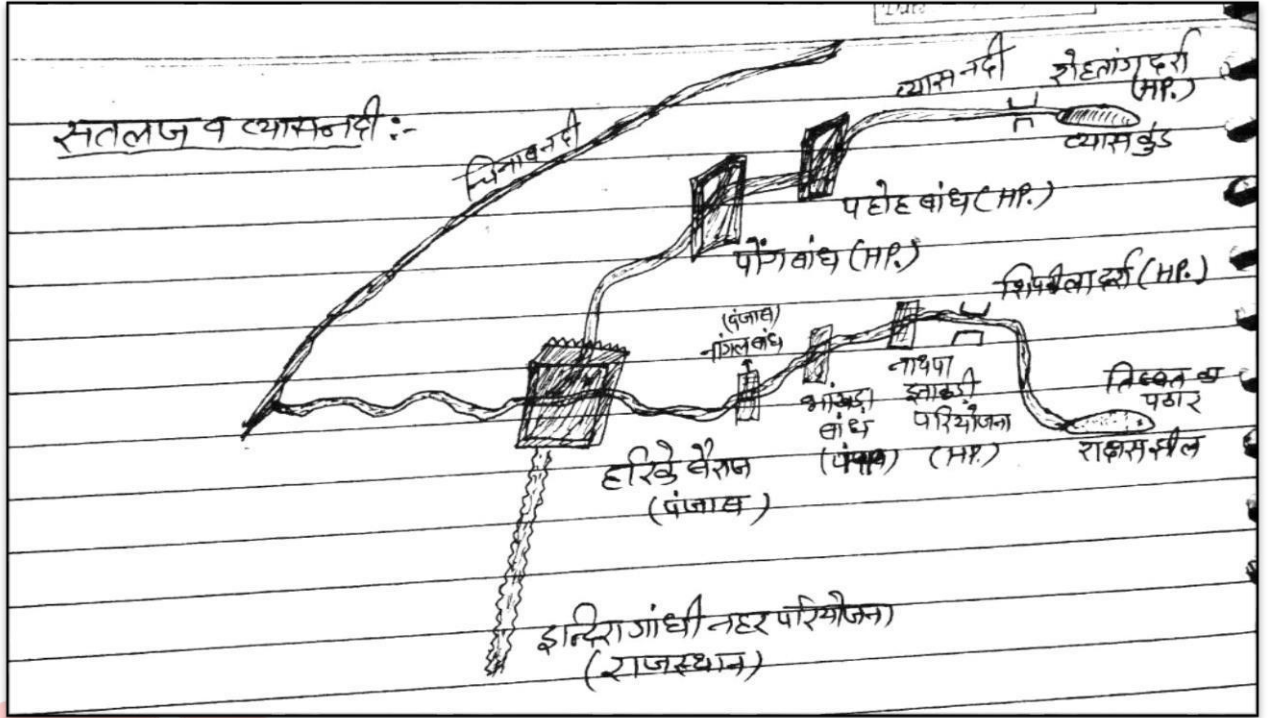 सतलज व व्यास नदी :-
चिनाब नदी
व्यास नदी
रोहतांग दर्रा
(HP.)
व्यास कुंड
पंडोह बांध (HP.)
पोंग बांध (HP.)
शिपकीला दर्रा (HP.)
(पंजाब)
नांगल बांध
भांखड़ा
बांध
नाथपा
झाकड़ी
परियोजना
(HP.)
तिब्बत का
पठार
राक्षस झील
हरिके बैराज
(पंजाब)
इन्दिरा गांधी नहर परियोजना
(राजस्थान)